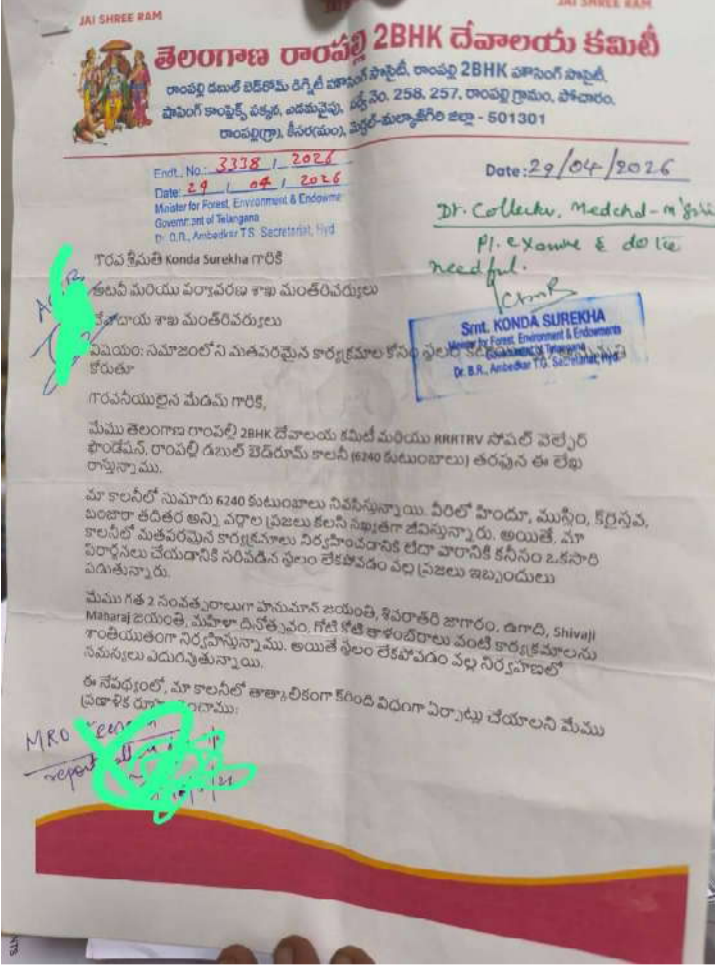 JAI SHREE RAM
JAI SHREE RAM
తెలంగాణ రాంపల్లి 2BHK దేవాలయ కమిటీ
రాంపల్లి డబుల్ బెడ్‌రోమ్ డిగ్నిటీ హౌసింగ్ సొసైటీ, రాంపల్లి 2BHK హౌసింగ్ సొసైటీ,
షాపింగ్ కాంప్లెక్స్ పక్కన, ఎడమవైపు, సర్వే నెం. 258, 257, రాంపల్లి గ్రామం, పోచారం,
రాంపల్లి(గ్రా), కీసర(మం), మేడ్చల్-మల్కాజిగిరి జిల్లా - 501301
Endt. No.: 3338 / 2026
Date: 29 / 04 / 2026
Minister for Forest, Environment & Endowme
Government of Telangana
Dr. B.R., Ambedkar T.S. Secretariat, Hyd
Date: 29/04/2026
Dt. Collector, Medchal-m'giri
Pl. examine & do the
needful.
గౌరవ శ్రీమతి Konda Surekha గారికి
అటవీ మరియు పర్యావరణ శాఖ మంత్రివర్యులు
దేవాదాయ శాఖ మంత్రివర్యులు
Smt. KONDA SUREKHA
Minister for Forest, Environment & Endowments
Government of Telangana
Dr. B.R., Ambedkar T.G. Secretariat, Hyd.
విషయం: సమాజంలోని మతపరమైన కార్యక్రమాల కోసం స్థలం
కోరుతూ
గౌరవనీయులైన మేడమ్ గారికి,
మేము తెలంగాణ రాంపల్లి 2BHK దేవాలయ కమిటీ మరియు RRRTRV సోషల్ వెల్ఫేర్
ఫౌండేషన్, రాంపల్లి డబుల్ బెడ్‌రూమ్ కాలనీ (6240 కుటుంబాలు) తరఫున ఈ లేఖ
రాస్తున్నాము.
మా కాలనీలో సుమారు 6240 కుటుంబాలు నివసిస్తున్నాయి. వీరిలో హిందూ, ముస్లిం, క్రైస్తవ,
బంజారా తదితర అన్ని వర్గాల ప్రజలు కలసి సఖ్యతగా జీవిస్తున్నారు. అయితే, మా
కాలనీలో మతపరమైన కార్యక్రమాలు నిర్వహించడానికి లేదా వారానికి కనీసం ఒకసారి
ప్రార్థనలు చేయడానికి సరిపడిన స్థలం లేకపోవడం వల్ల ప్రజలు ఇబ్బందులు
పడుతున్నారు.
మేము గత 2 సంవత్సరాలుగా హనుమాన్ జయంతి, శివరాత్రి జాగారం, ఉగాది, Shivaji
Maharaj జయంతి, మహిళా దినోత్సవం, గోటి కోటి తాళంబరాలు వంటి కార్యక్రమాలను
శాంతియుతంగా నిర్వహిస్తున్నాము. అయితే స్థలం లేకపోవడం వల్ల నిర్వహణలో
సమస్యలు ఎదురవుతున్నాయి.
ఈ నేపథ్యంలో, మా కాలనీలో తాత్కాలికంగా క్రింది విధంగా ఏర్పాట్లు చేయాలని మేము
ప్రణాళిక
MRO
report